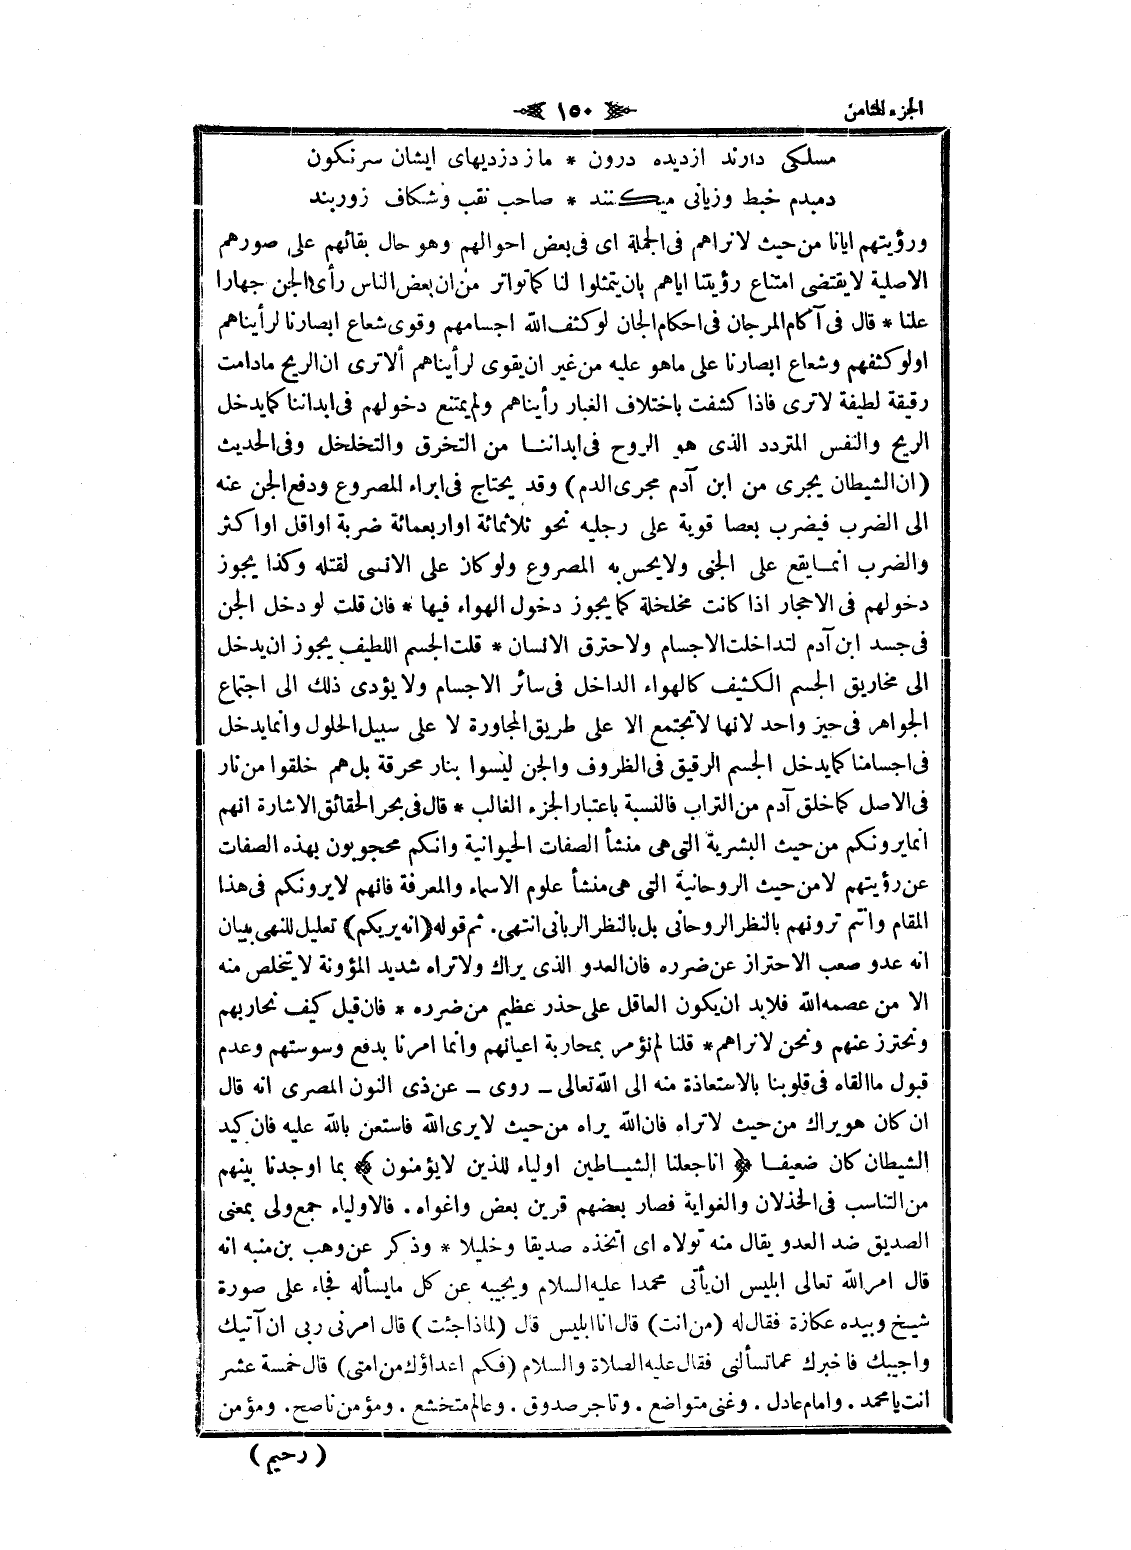 الجزء الثامن
١٥٠
مسلكى دارند ازديده درون * ما ز دزديهاى ايشان سرنكون
دمبدم خبط وزيانى ميكنند * صاحب نقب وشكاف زوربند
ورؤيتهم ايانا من حيث لانراهم فى الجملة اى فى بعض احوالهم وهو حال بقائهم على صورهم
الاصلية لا يقتضى امتناع رؤيتنا اياهم بان يتمثلوا لنا كما تواتر من ان بعض الناس رأى الجن جهارا
علنا * قال فى آكام المرجان فى احكام الجان لو كثف الله اجسامهم وقوى شعاع ابصارنا لرأيناهم
اولو كثفهم وشعاع ابصارنا على ماهو عليه من غير ان يقوى لرأيناهم ألاترى ان الريح مادامت
رقيقة لطيفة لاترى فاذا كشفت باختلاف الغبار رأيناهم ولم يمتنع دخولهم فى ابداننا كما يدخل
الريح والنفس المتردد الذى هو الروح فى ابداننا من التخرق والتخلخل وفى الحديث
(ان الشيطان يجرى من ابن آدم مجرى الدم) وقد يحتاج فى ابراء المصروع ودفع الجن عنه
الى الضرب فيضرب بعصا قوية على رجليه نحو ثلاثمائة اواربعمائة ضربة اواقل اواكثر
والضرب انما يقع على الجنى ولايحس به المصروع ولو كان على الانسى لقتله وكذا يجوز
دخولهم فى الاحجار اذا كانت مخلخلة كما يجوز دخول الهواء فيها * فان قلت لو دخل الجن
فى جسد ابن آدم لتداخلت الاجسام ولاحترق الانسان * قلت الجسم اللطيف يجوز ان يدخل
الى مخاريق الجسم الكثيف كالهواء الداخل فى سائر الاجسام ولا يؤدى ذلك الى اجتماع
الجواهر فى حيز واحد لانها لاتجتمع الا على طريق المجاورة لا على سبيل الحلول وانما يدخل
فى اجسامنا كما يدخل الجسم الرقيق فى الظروف والجن ليسوا بنار محرقة بل هم خلقوا من نار
فى الاصل كما خلق آدم من التراب فالنسبة باعتبار الجزء الغالب * قال فى بحر الحقائق الاشارة انهم
انما يرونكم من حيث البشرية التى هى منشأ الصفات الحيوانية وانكم محجوبون بهذه الصفات
عن رؤيتهم لا من حيث الروحانية التى هى منشأ علوم الاسماء والمعرفة فانهم لايرونكم فى هذا
المقام وانتم ترونهم بالنظر الروحانى بل بالنظر الربانى انتهى. ثم قوله ﴿انه يريكم﴾ تعليل للنهى ببيان
انه عدو صعب الاحتراز عن ضرره فان العدو الذى يراك ولاتراه شديد المؤونة لا يتخلص منه
الا من عصمه الله فلابد ان يكون العاقل على حذر عظيم من ضرره * فان قيل كيف نحاربهم
ونحترز عنهم ونحن لانراهم * قلنا لم نؤمر بمحاربة اعيانهم وانما امرنا بدفع وسوستهم وعدم
قبول ما القاه فى قلوبنا بالاستعاذة منه الى الله تعالى ـ روى ـ عن ذى النون المصرى انه قال
ان كان هو يراك من حيث لاتراه فان الله يراه من حيث لايرى الله فاستعن بالله عليه فان كيد
الشيطان كان ضعيفا ﴿ اناجعلنا الشياطين اولياء للذين لايؤمنون ﴾ بما اوجدنا بينهم
من التناسب فى الخذلان والغواية فصار بعضهم قرين بعض واغواه . فالاولياء جمع ولى بمعنى
الصديق ضد العدو يقال منه تولاه اى اتخذه صديقا وخليلا * وذكر عن وهب بن منبه انه
قال امر الله تعالى ابليس ان يأتى محمدا عليه السلام ويجيبه عن كل مايسأله فجاء على صورة
شيخ وبيده عكازة فقال له (من انت) قال انا ابليس قال (لماذا جئت) قال امرنى ربى ان آتيك
واجيبك فاخبرك عما تسألنى فقال عليه الصلاة والسلام (فكم اعداؤك من امتى) قال خمسة عشر
انت يا محمد . وامام عادل . وغنى متواضع . وتاجر صدوق . وعالم متخشع . ومؤمن ناصح . ومؤمن
( رحيم )